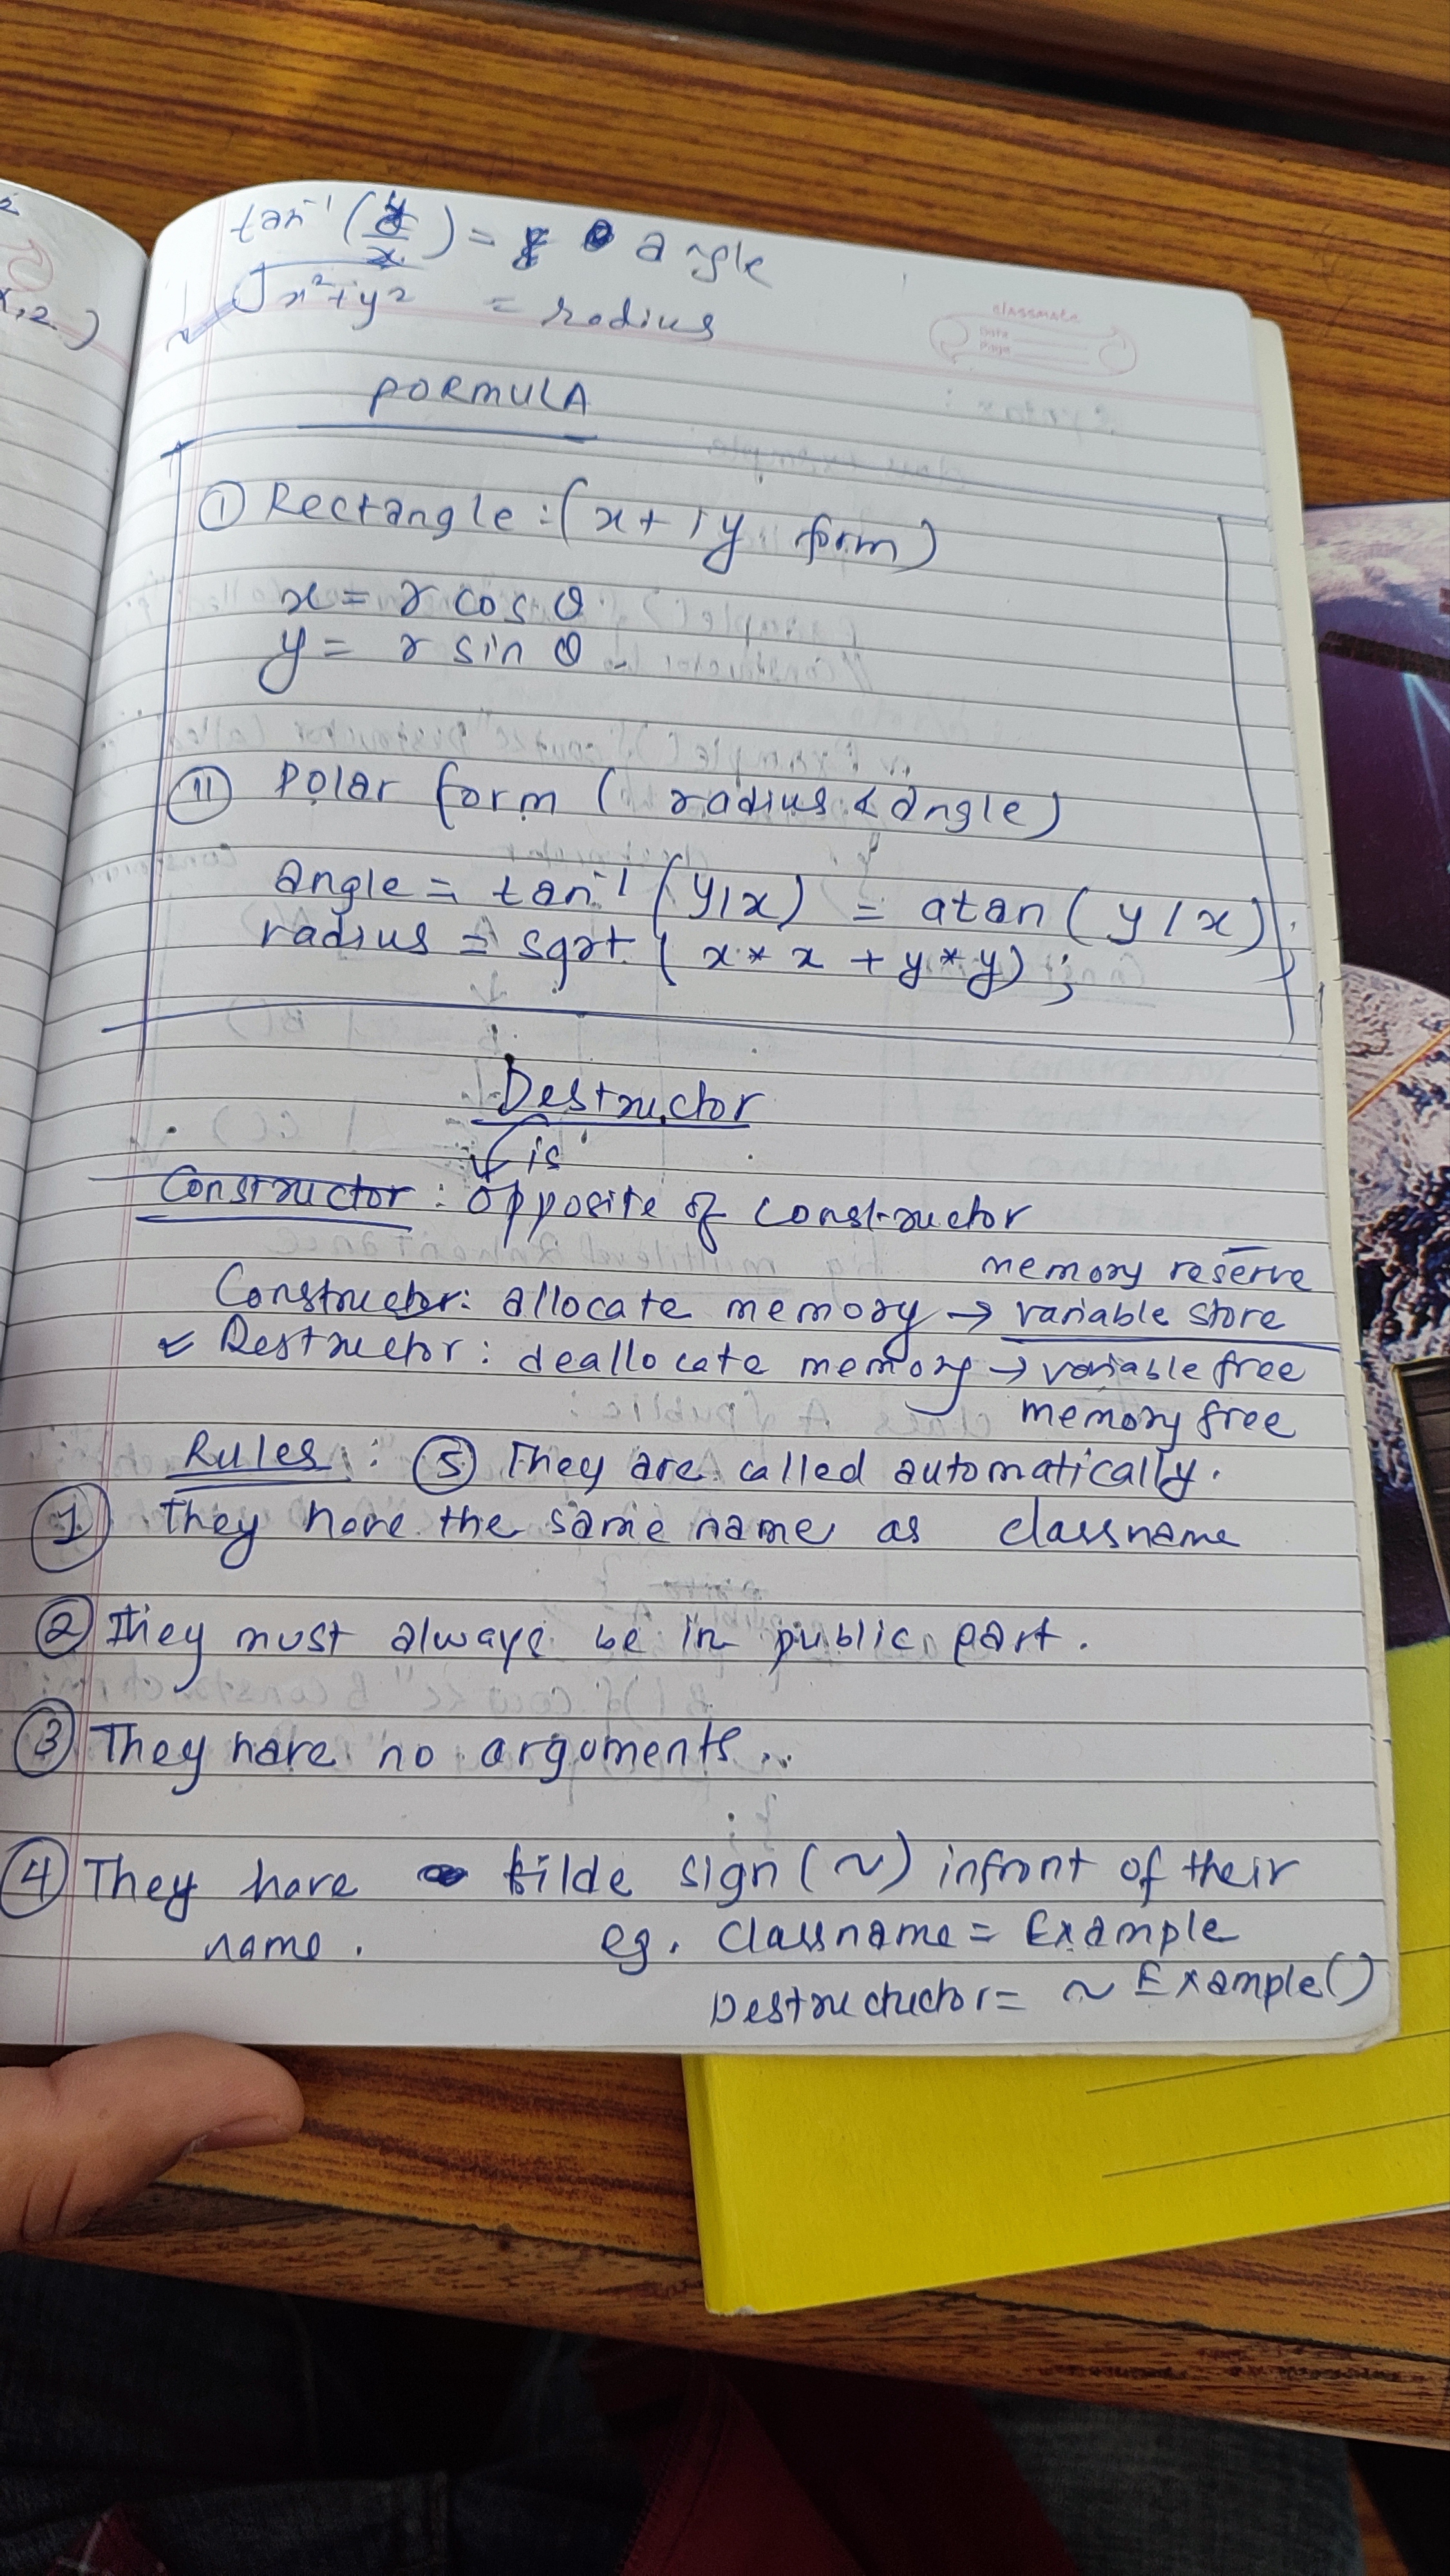 tan⁻¹(y/x) = angle
√x²+y² = radius
classmate
Date
Page
FORMULA
① Rectangle :(x+iy form)
x = r cos θ
y = r sin θ
⑪ Polar form ( radius & angle)
angle = tan⁻¹ (y/x) = atan (y/x);
radius = sqrt ( x * x + y * y) ;
Destructor
is
Constructor : opposite of constructor
memory reserve
Constructor: allocate memory → variable store
Destructor : deallocate memory → variable free
memory free
Rules : ⑤ They are called automatically.
① They have the same name as classname
② They must always be in public part.
③ They have no argoments..
④ They have tilde sign (~) infront of their
name. eg. Classname = Example
Destructuctor = ~ Example()
x,2.)